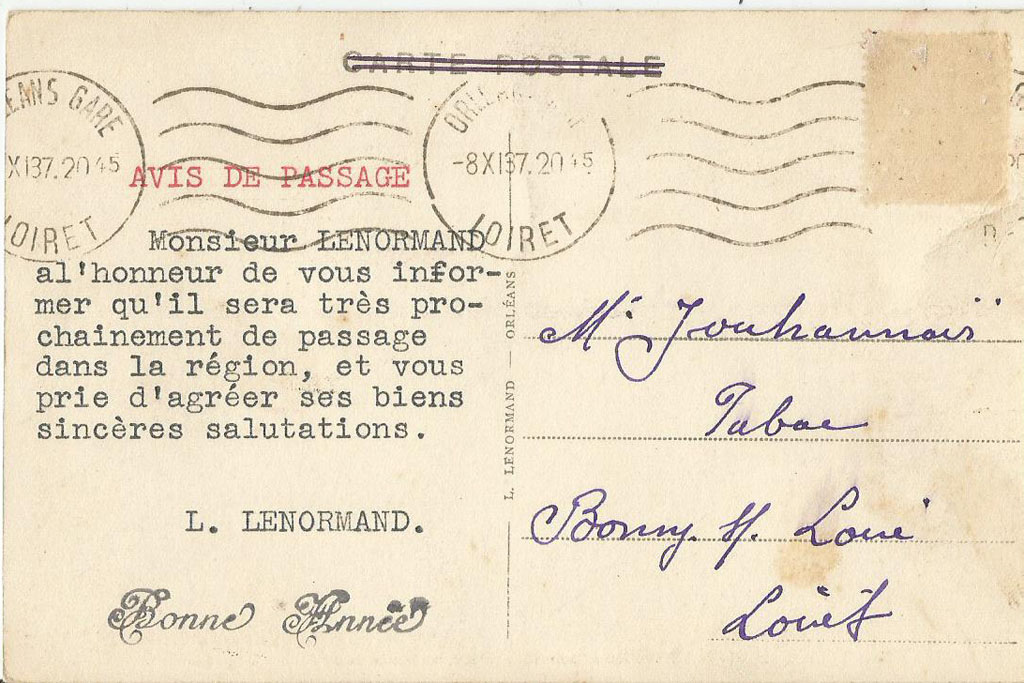 CARTE POSTALE
EANS GARE
XI37.20 45
OIRET
ORLEANS GARE
-8XI37.20 45
LOIRET
AVIS DE PASSAGE
Monsieur LENORMAND
al'honneur de vous infor-
mer qu'il sera très pro-
chainement de passage
dans la région, et vous
prie d'agréer ses biens
sincères salutations.
L. LENORMAND.
Bonne Année
L. LENORMAND — ORLÉANS
Mr Jouhannais
Tabac
Bonny s/. Loire
Loiret